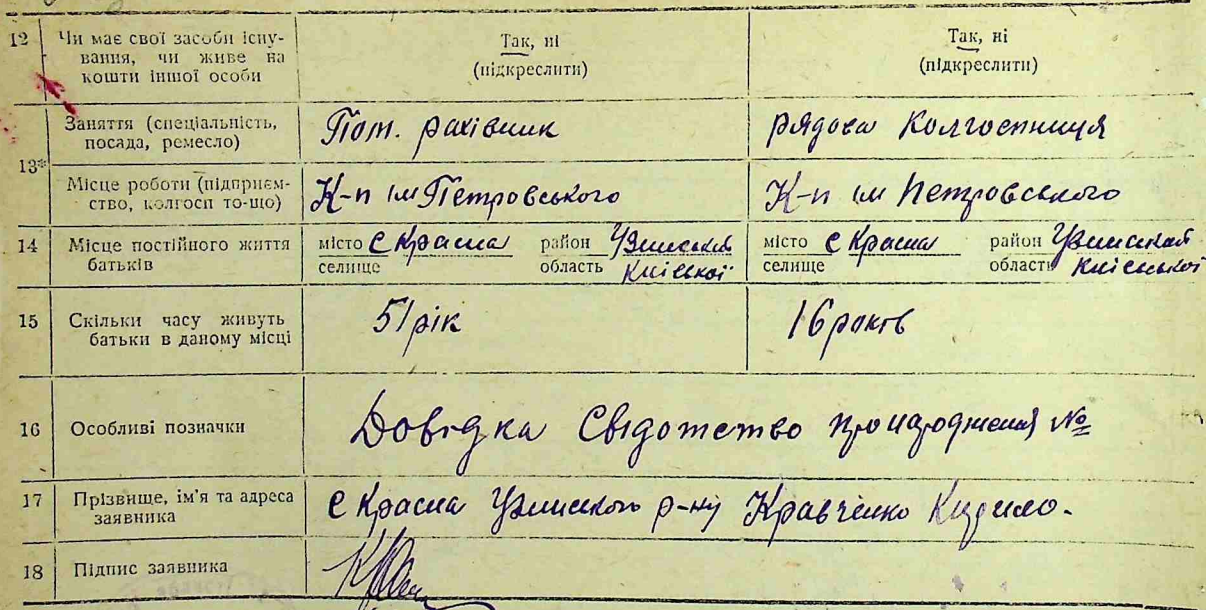 12 Чи має свої засоби існу-
вання, чи живе на
кошти іншої особи
Так, ні
(підкреслити)
Так, ні
(підкреслити)
13*
Заняття (спеціальність,
посада, ремесло)
Пом. рахівник
рядова колгоспниця
Місце роботи (підприєм-
ство, колгосп то-що)
К-п ім Петровського
К-п ім Петровського
14 Місце постійного життя
батьків
місто с Красна район Узинський
селище область Київської
місто с Красна район Узинський
селище область Київської
15 Скільки часу живуть
батьки в даному місці
51 рік
16 років
16 Особливі позначки
Довідка Свідотство про народження №
17 Прізвище, ім'я та адреса
заявника
с Красна Узинського р-ну Кравченко Кирило.
18 Підпис заявника